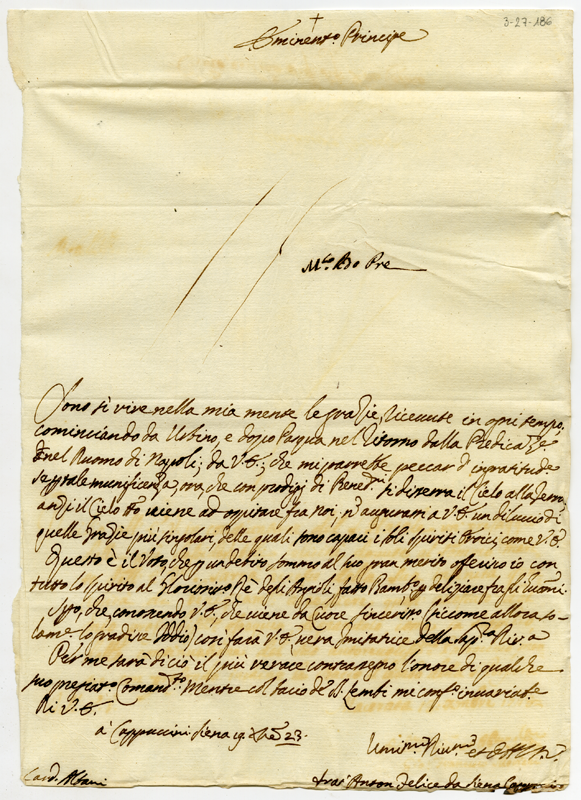 3-27-186
Eminentmo. Principe
Mto. Rdo Pre
Sono sì vive nella mia mente le grazie, ricevute in ogni tempo,
cominciando da Urbino, e dopo Pasqua nel ritorno dalla Predicaze
nel Duomo di Napoli; da V. E., che mi parrebbe peccar d'ingratitude
se p tale munificenza, ora, che con prodigi di Bened. si disserra il Cielo alla terra,
anzi il Cielo viene ad ospitare fra noi, n augurassi a V. E. un diluvio di
quelle Grazie più singolari, delle quali sono capaci i soli spiriti Eroici, come V. E.
Questo è il Voto, che p un debito sommo al suo gran merito offerisco con
tutto lo spirito al Re degli Angioli fatto Bambo p deliziare fra gli uomini.
Spo, che conoscendo V. E., che viene da Cuore sincerismo siccome allora so-
lamte lo gradisce Iddio, così farà V. E. vera imitatrice della Divina
Per me sarà di ciò il più verace contrasegno l'onore di qualche
suo pregiato Comando. Mentre col bacio de' S. Lembi mi confo invariabte
Di V. E.
a' Cappuccini Siena 19 Xbre 23.
Umilmo Divmo et
Card. Albani
fra Anton Felice da Siena Cappuccino